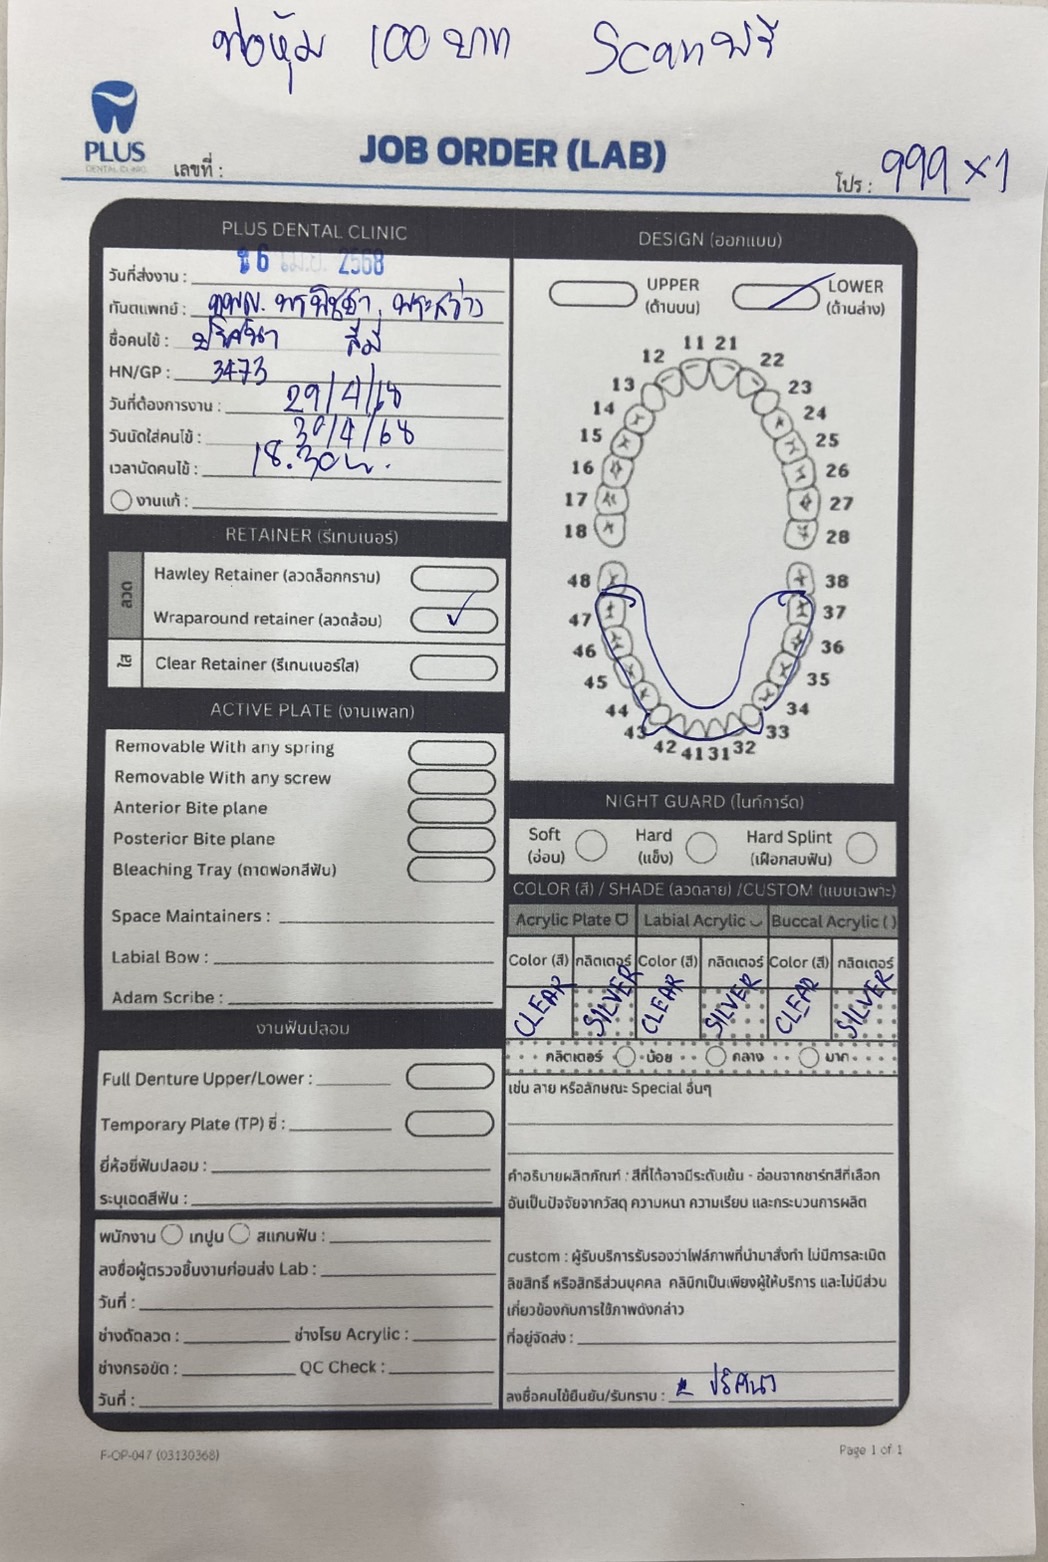 ท่อหุ้ม 100 บาท Scanฟรี
PLUS
DENTAL CLINIC
เลขที่ :
JOB ORDER (LAB)
โปร : 999 x 1
PLUS DENTAL CLINIC
วันที่ส่งงาน : 6 เม.ย. 2568
ทันตแพทย์ : ทพญ.
ชื่อคนไข้ : ปริศนา สีมี
HN/GP : 3473
วันที่ต้องการงาน : 29/4/68
วันนัดใส่คนไข้ : 30/4/68
เวลานัดคนไข้ : 18.30 น.
งานแก้ :
RETAINER (รีเทนเนอร์)
ลวด
Hawley Retainer (ลวดล็อกกราม)
Wraparound retainer (ลวดล้อม) ✓
ใส
Clear Retainer (รีเทนเนอร์ใส)
ACTIVE PLATE (งานเพลท)
Removable With any spring
Removable With any screw
Anterior Bite plane
Posterior Bite plane
Bleaching Tray (ถาดฟอกสีฟัน)
Space Maintainers :
Labial Bow :
Adam Scribe :
งานฟันปลอม
Full Denture Upper/Lower :
Temporary Plate (TP) ซี่ :
ยี่ห้อซี่ฟันปลอม :
ระบุเฉดสีฟัน :
พนักงาน เทปูน สแกนฟัน :
ลงชื่อผู้ตรวจชิ้นงานก่อนส่ง Lab :
วันที่ :
ช่างดัดลวด : ช่างโรย Acrylic :
ช่างกรอขัด : QC Check :
วันที่ :
DESIGN (ออกแบบ)
UPPER (ด้านบน)
LOWER (ด้านล่าง)
11 21
12 22
13 23
14 24
15 25
16 26
17 27
18 28
48 38
47 37
46 36
45 35
44 34
43 33
42 41 31 32
NIGHT GUARD (ไนท์การ์ด)
Soft (อ่อน)
Hard (แข็ง)
Hard Splint (เฝือกสบฟัน)
COLOR (สี) / SHADE (ลวดลาย) /CUSTOM (แบบเฉพาะ)
Acrylic Plate Labial Acrylic Buccal Acrylic ( )
Color (สี) กลิตเตอร์ Color (สี) กลิตเตอร์ Color (สี) กลิตเตอร์
CLEAR SILVER CLEAR SILVER CLEAR SILVER
กลิตเตอร์ น้อย กลาง มาก
เช่น ลาย หรือลักษณะ Special อื่นๆ
คำอธิบายผลิตภัณฑ์ : สีที่ได้อาจมีระดับเข้ม - อ่อนจากชาร์ทสีที่เลือก
อันเป็นปัจจัยจากวัสดุ ความหนา ความเรียบ และกระบวนการผลิต
custom : ผู้รับบริการรับรองว่าไฟล์ภาพที่นำมาสั่งทำ ไม่มีการละเมิด
ลิขสิทธิ์ หรือสิทธิส่วนบุคคล คลินิกเป็นเพียงผู้ให้บริการ และไม่มีส่วน
เกี่ยวข้องกับการใช้ภาพดังกล่าว
ที่อยู่จัดส่ง :
ลงชื่อคนไข้ยืนยัน/รับทราบ : ปริศนา
F-OP-047 (03130368)
Page 1 of 1